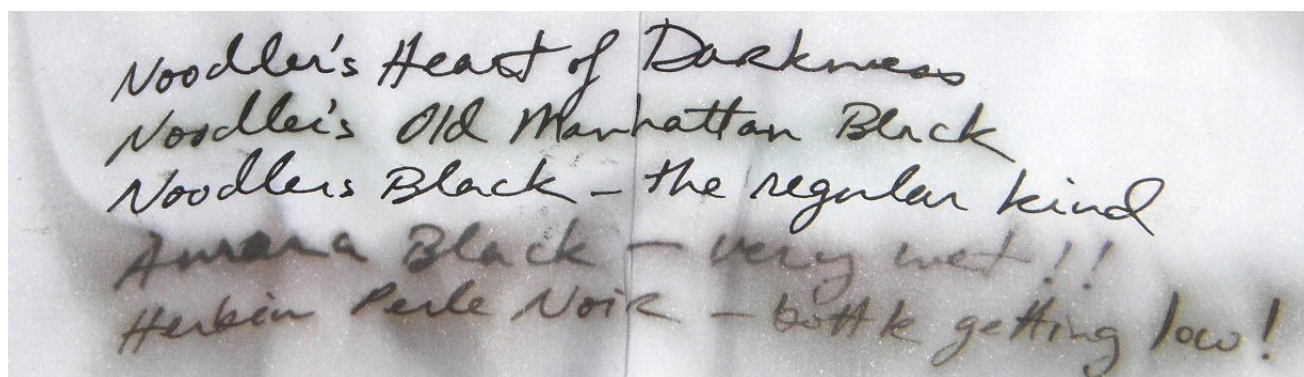 Noodler's Heart of Darkness
Noodler's Old Manhattan Black
Noodlers Black – the regular kind
Aurora Black – very wet!!
Herbin Perle Noir – bottle getting low!